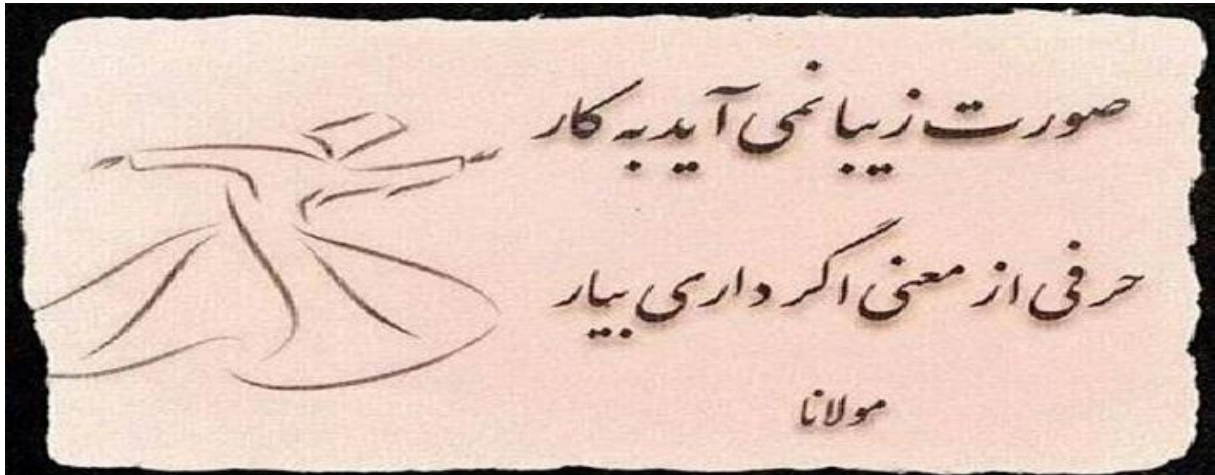 صورت زیبا نمی آید به کار
حرفی از معنی اگر داری بیار
مولانا